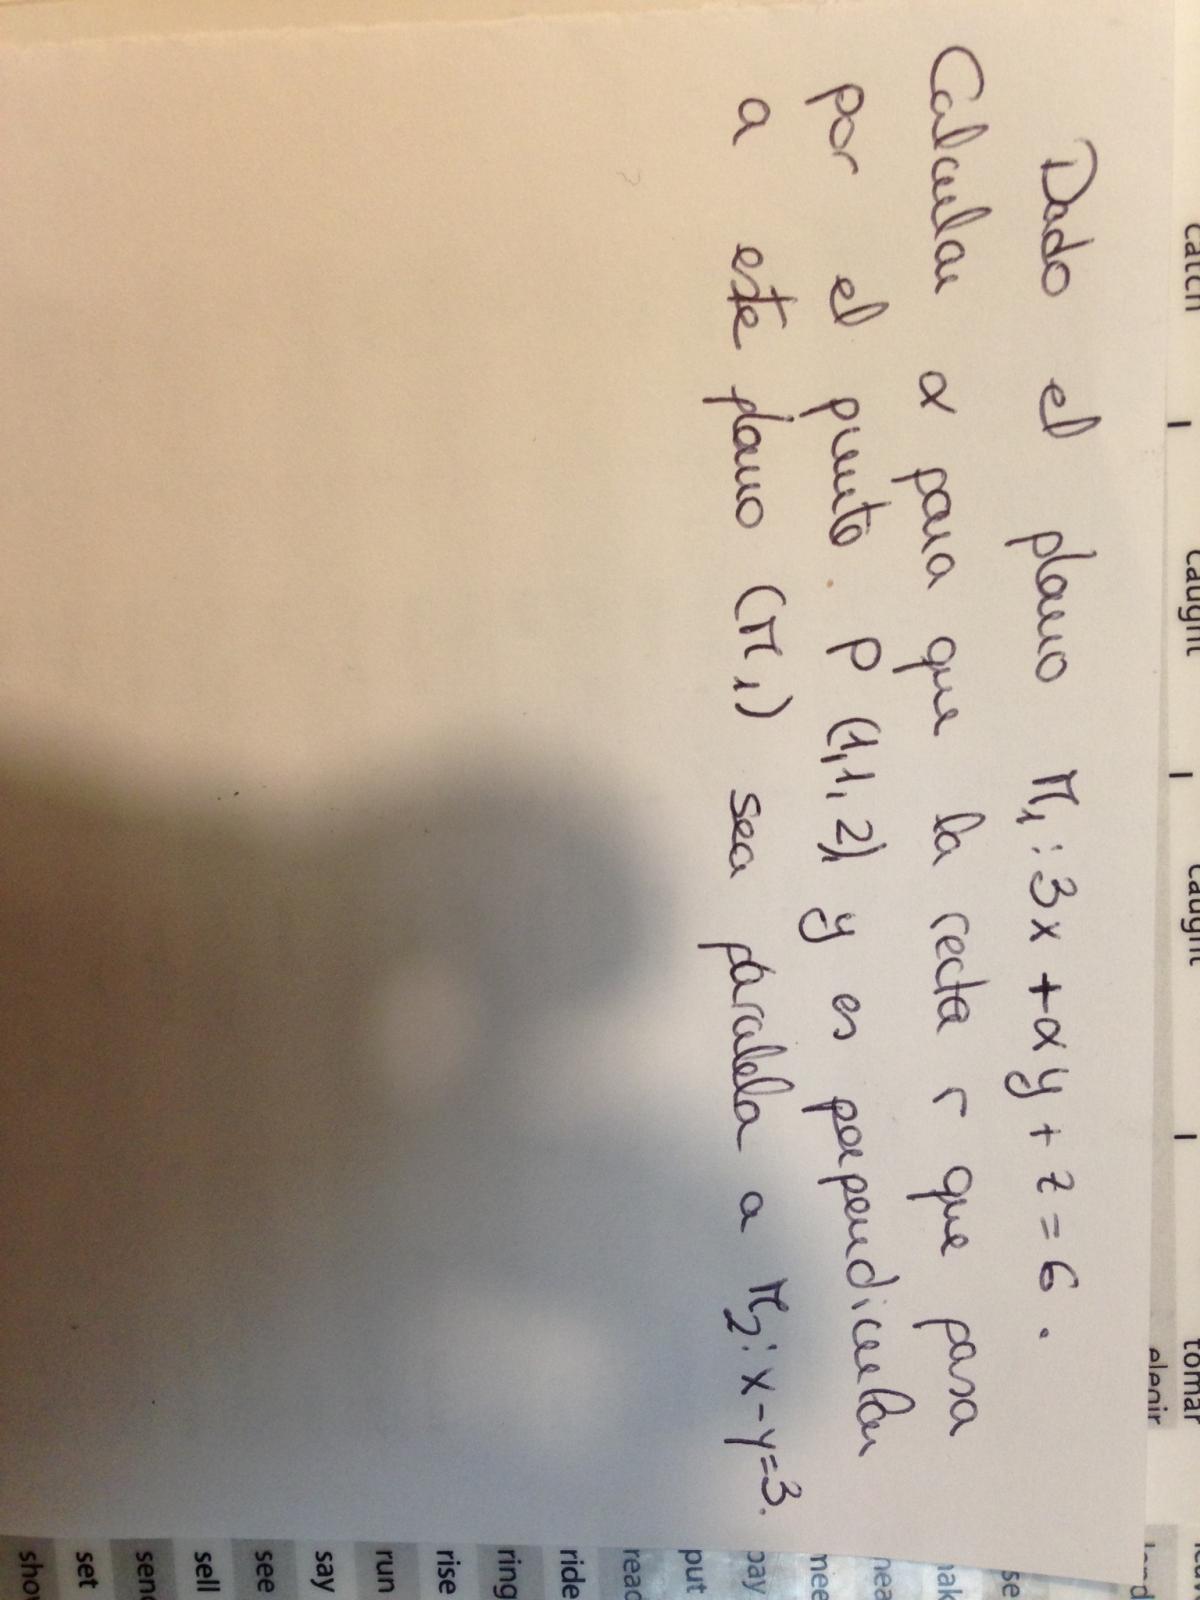 Dado el plano π₁: 3x + αy + z = 6.
Calcular α para que la recta r que pasa
por el punto P (1,1,2) y es perpendicular
a este plano (π₁) sea paralela a π₂: x - y = 3.
catch
caught
caught
tomar
elegir
se
put
read
ride
ring
rise
run
say
see
sell
send
set